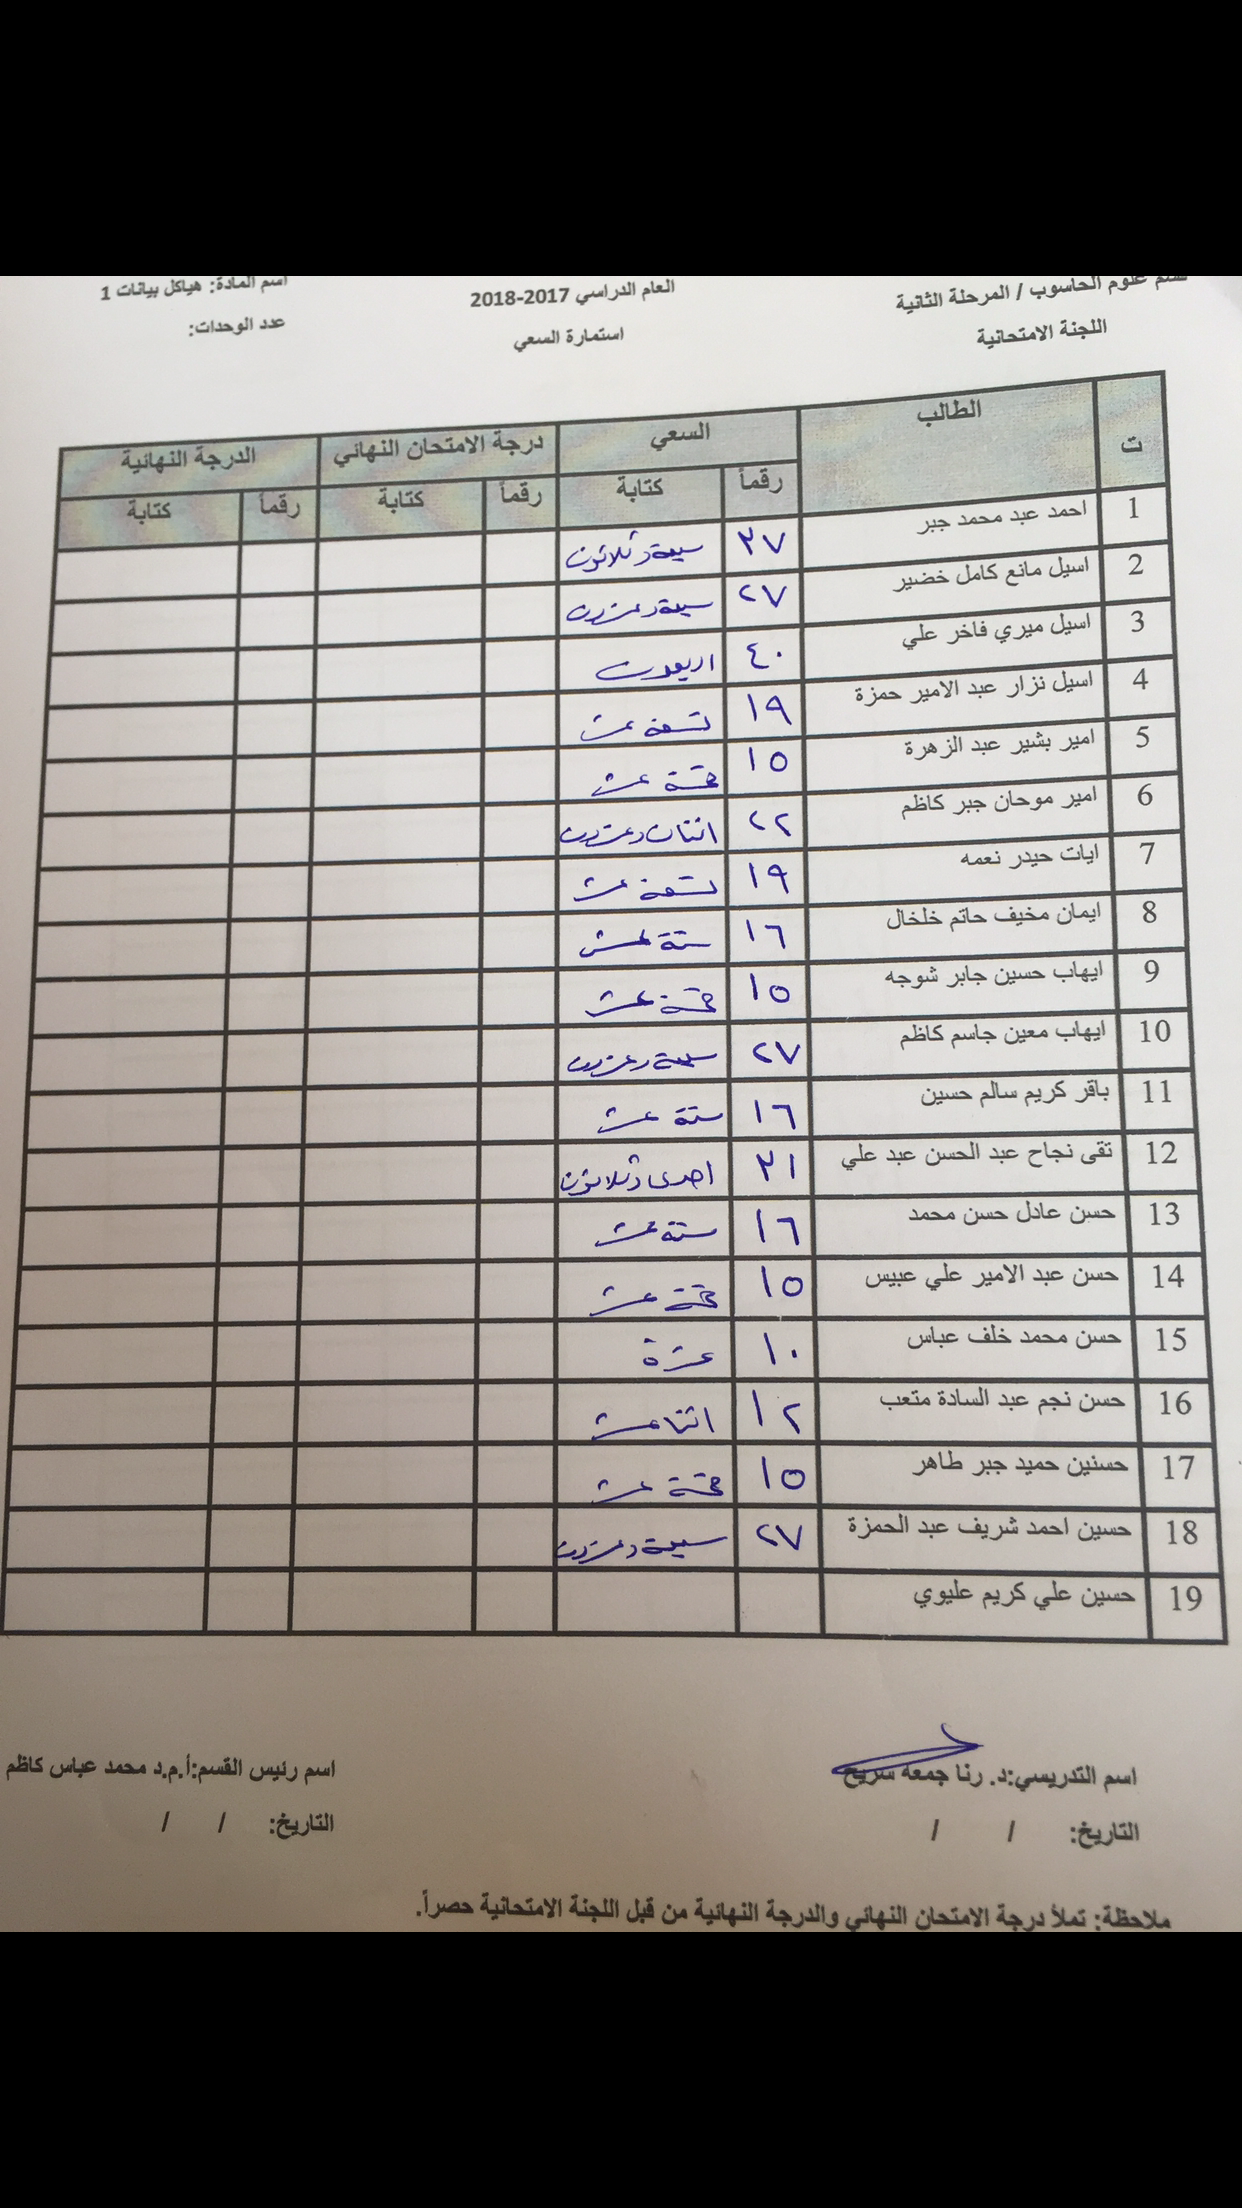 قسم علوم الحاسوب / المرحلة الثانية
العام الدراسي 2017-2018
اسم المادة: هياكل بيانات 1
اللجنة الامتحانية
استمارة السعي
عدد الوحدات:
ت الطالب السعي درجة الامتحان النهائي الدرجة النهائية
رقماً كتابة رقماً كتابة رقماً كتابة
1 احمد عبد محمد جبر ٣٧ سبعة وثلاثون
2 اسيل مانع كامل خضير ٢٧ سبعة وعشرون
3 اسيل ميري فاخر علي ٤٠ اربعون
4 اسيل نزار عبد الامير حمزة ١٩ تسعة عشر
5 امير بشير عبد الزهرة ١٥ خمسة عشر
6 امير موحان جبر كاظم ٢٢ اثنان وعشرون
7 ايات حيدر نعمه ١٩ تسعة عشر
8 ايمان مخيف حاتم خلخال ١٦ ستة عشر
9 ايهاب حسين جابر شوجه ١٥ خمسة عشر
10 ايهاب معين جاسم كاظم ٢٧ سبعة وعشرون
11 باقر كريم سالم حسين ١٦ ستة عشر
12 تقى نجاح عبد الحسن عبد علي ٣١ احدى وثلاثون
13 حسن عادل حسن محمد ١٦ ستة عشر
14 حسن عبد الامير علي عبيس ١٥ خمسة عشر
15 حسن محمد خلف عباس ١٠ عشرة
16 حسن نجم عبد السادة متعب ١٢ اثنا عشر
17 حسنين حميد جبر طاهر ١٥ خمسة عشر
18 حسين احمد شريف عبد الحمزة ٢٧ سبعة وعشرون
19 حسين علي كريم عليوي
اسم التدريسي:د. رنا جمعه سريح
اسم رئيس القسم:أ.م.د محمد عباس كاظم
التاريخ: / /
التاريخ: / /
ملاحظة: تملأ درجة الامتحان النهائي والدرجة النهائية من قبل اللجنة الامتحانية حصراً.